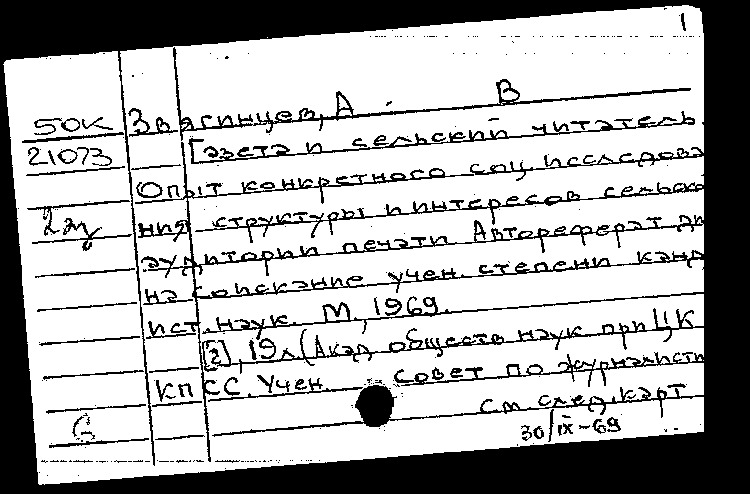 1
50К Звягинцев, А. В
21073 Газета и сельский читатель.
Опыт конкретного соц. исследова
2 эз ния структуры и интересов сельско
аудитории печати Автореферат ди
на соискание учен. степени канд
ист. наук. М., 1969.
[2], 19 л (Акад обществ наук при ЦК
КПСС. Учен. совет по журналисти
См. след. карт
6
30/IX-69